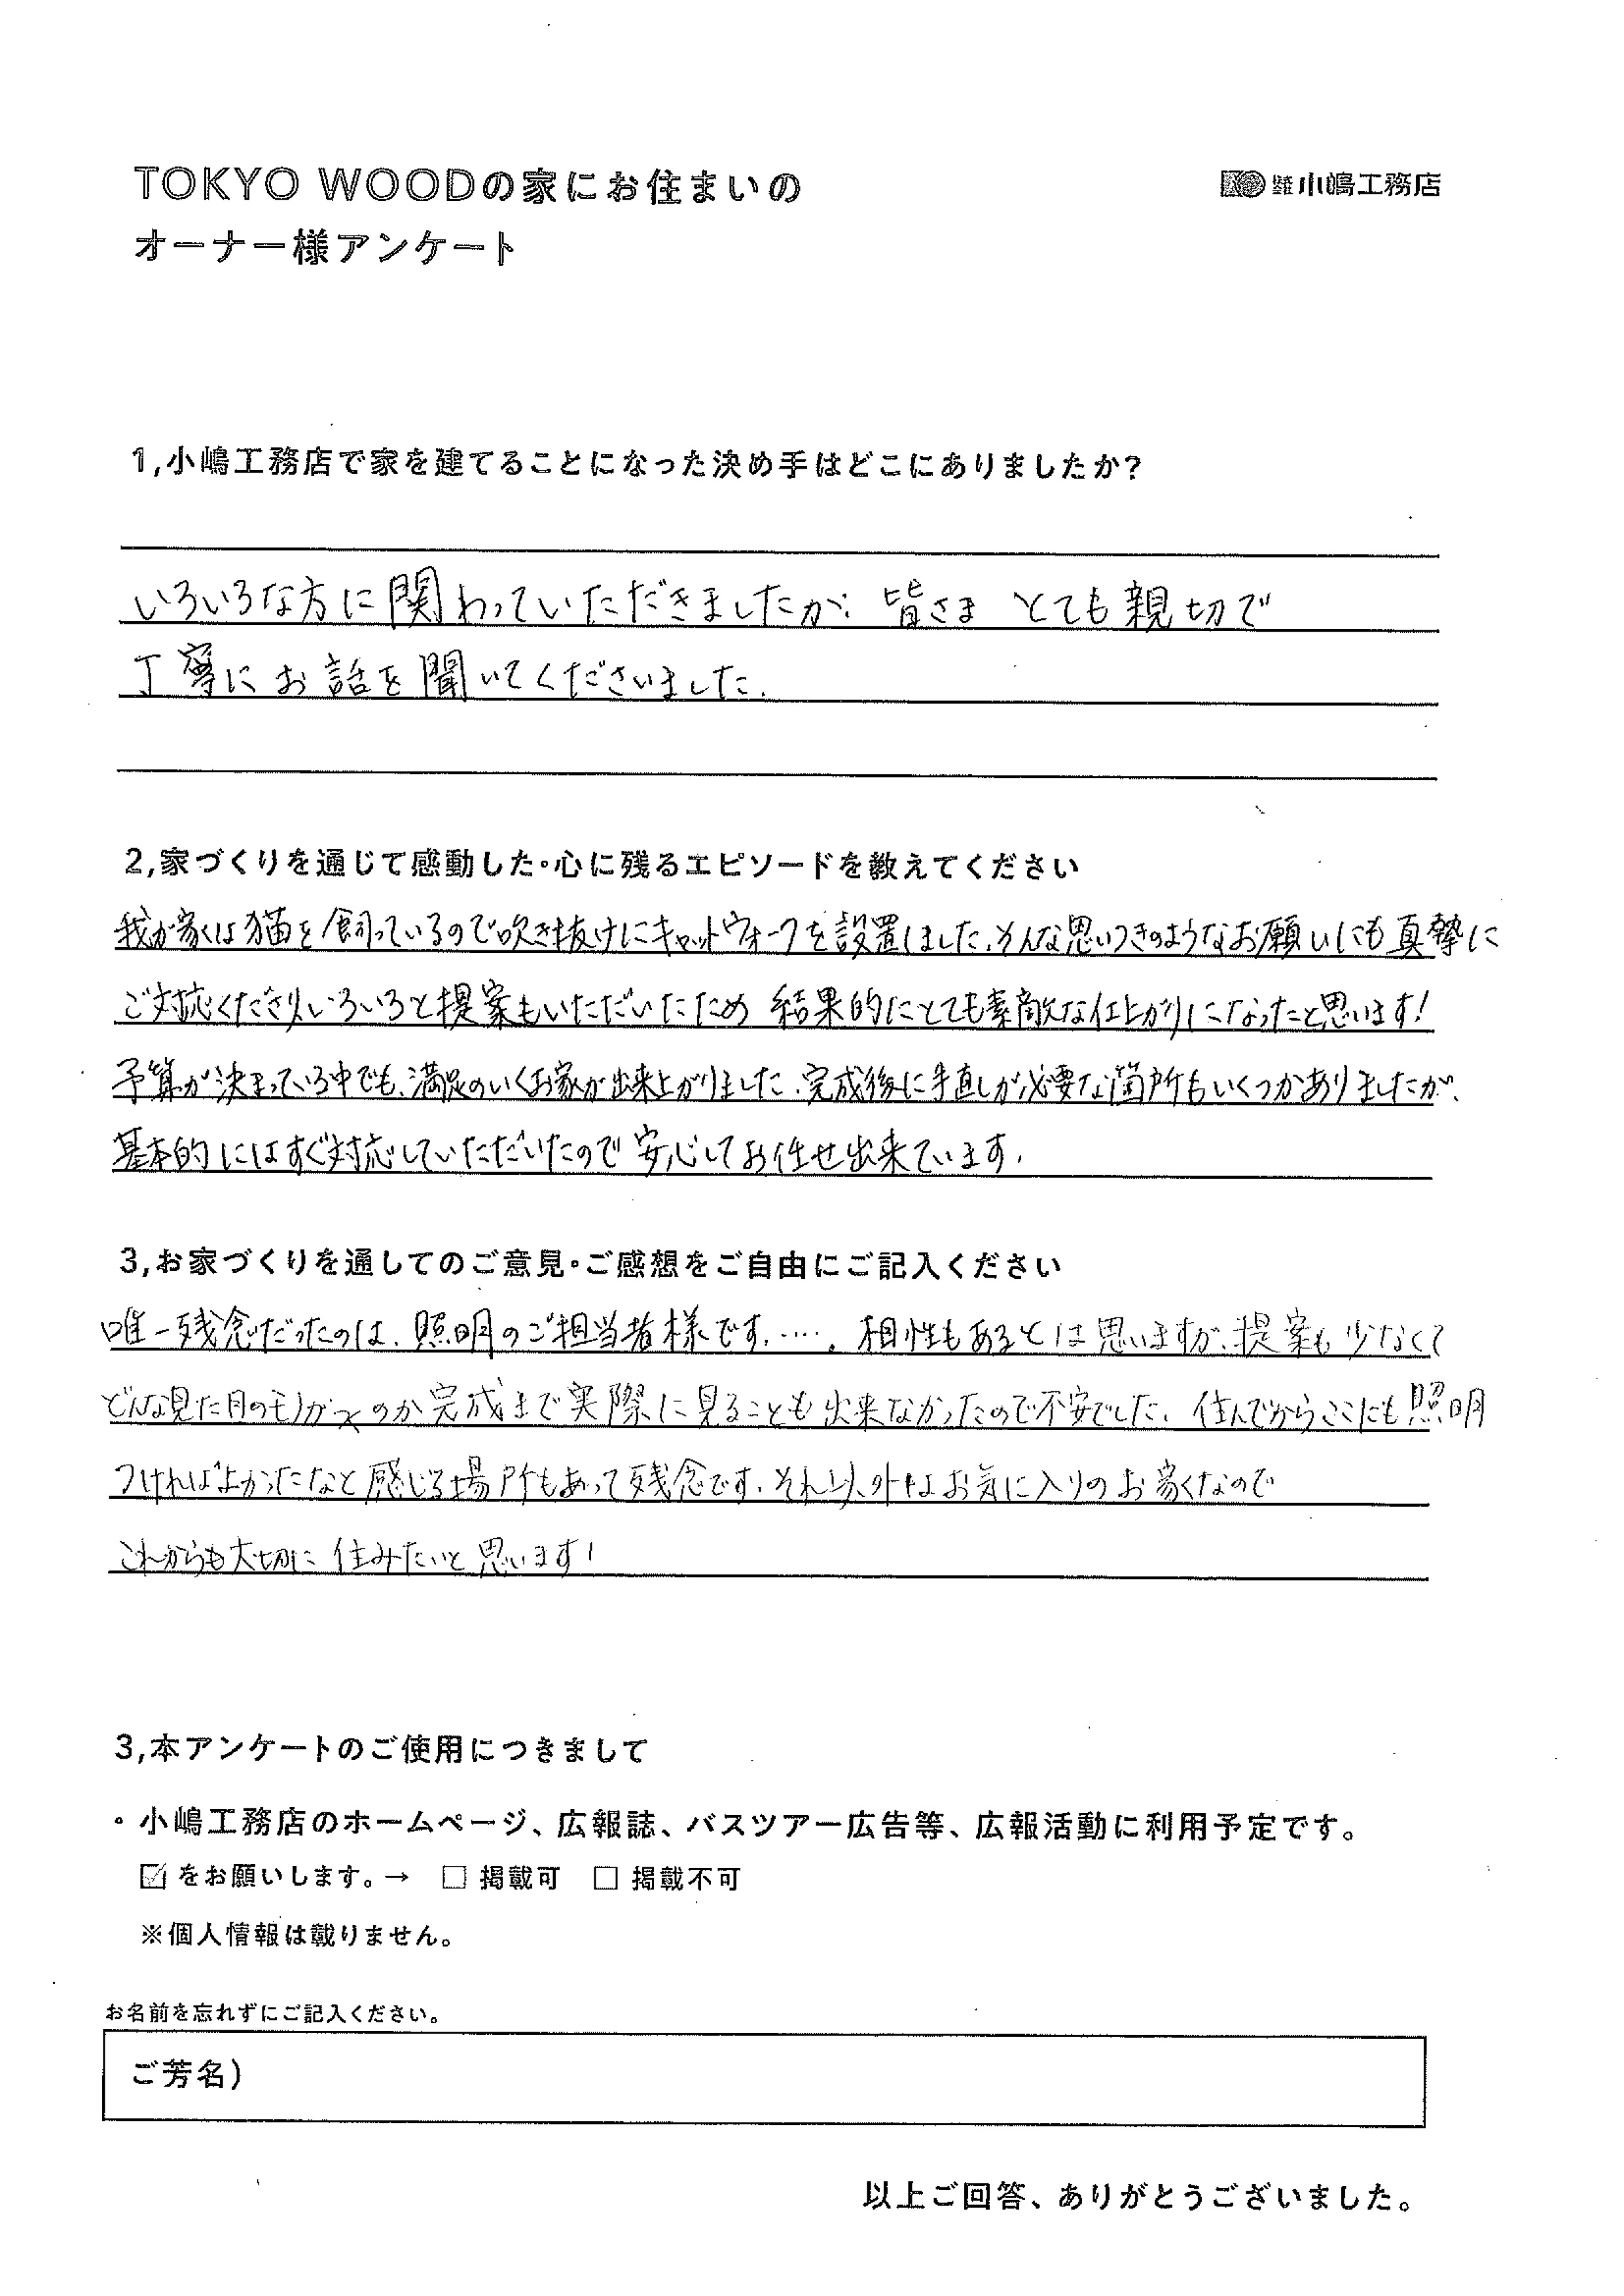 TOKYO WOODの家にお住まいの
オーナー様アンケート
株式会社 小嶋工務店
1,小嶋工務店で家を建てることになった決め手はどこにありましたか?
いろいろな方に関わっていただきましたが、皆さま とても親切で
丁寧にお話を聞いてくださいました.
2,家づくりを通じて感動した・心に残るエピソードを教えてください
我が家は猫を飼っているので吹き抜けにキャットウォークを設置しました.そんな思いつきのようなお願いにも真摯に
ご対応くださりいろいろと提案もいただいたため 結果的にとても素敵な仕上がりになったと思います!
予算が決まっている中でも、満足のいくお家が出来上がりました.完成後に手直しが必要な箇所もいくつかありましたが、
基本的にはすぐ対応していただいたので安心してお任せ出来ています.
3,お家づくりを通してのご意見・ご感想をご自由にご記入ください
唯一残念だったのは、照明のご担当者様です.….相性もあるとは思いますが、提案も少なくて
どんな見た目のモノがつくのか完成まで実際に見ることも出来なかったので不安でした. 住んでからここにも照明
つければよかったなと感じる場所もあって残念です.それ以外はお気に入りのお家なので
これからも大切に住みたいと思います!
3,本アンケートのご使用につきまして
・小嶋工務店のホームページ、広報誌、バスツアー広告等、広報活動に利用予定です。
☑をお願いします。→ □ 掲載可 □ 掲載不可
※個人情報は載りません。
お名前を忘れずにご記入ください。
ご芳名)
以上ご回答、ありがとうございました。